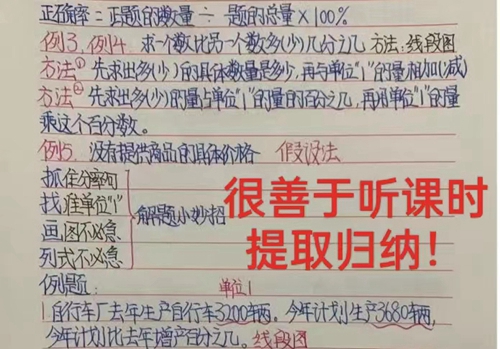 正确率=正题的数量÷题的总量×100%
例3、例4. 求一个数比另一个数多(少)几分之几 方法:线段图
方法① 先求出多(少)的具体数量是多少,再与单位"1"的量相加(减)
方法② 先求出多(少)的量占单位"1"的量的百分之几,再用单位"1"的量
乘这个百分数。
例5. 没有提供商品的具体价格 假设法
抓住分率句
找准单位"1"
画图不必急
列式不必急
解题小妙招
很善于听课时
提取归纳!
例题: 单位1
1自行车厂去年生产自行车3200辆。今年计划生产3680辆,
今年计划比去年增产百分之几。线段图